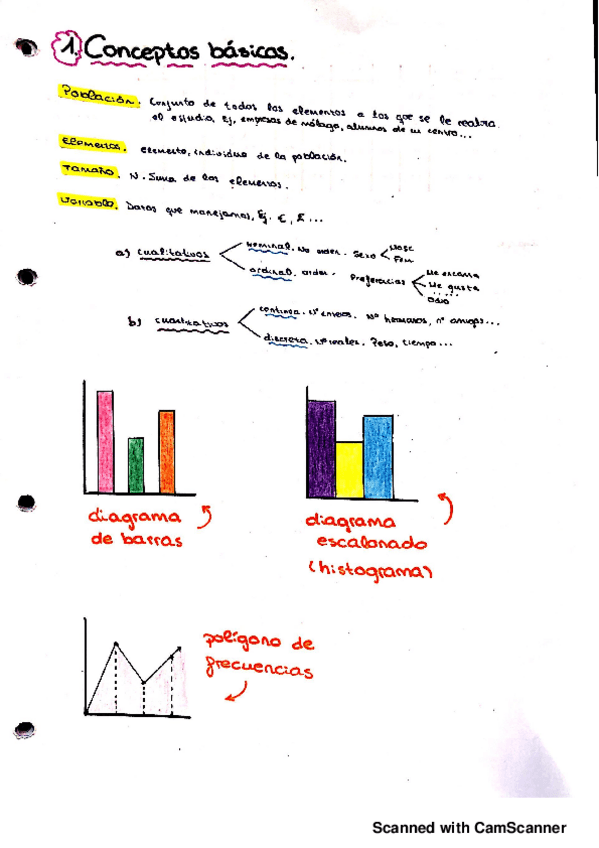 1. Conceptos básicos.
Población. Conjunto de todos los elementos a los que se le realiza
el estudio, Ej, empresas de málaga, alumnos de un centro...
Elementos. elemento, individuo de la población.
Tamaño. N. Suma de los elementos.
Variable. Datos que manejamos, Ej. €, ...
a) cualitativos
nominal. No orden. Sexo
Masc
Fem
ordinal. orden. Preferencias
Me encanta
Me gusta
......
Odio
b) cuantitativos
continua. Nº enteros. Nº hermanos, nº amigos...
discreta. Nº reales. Peso, tiempo...
diagrama
de barras
diagrama
escalonado
(histograma)
polígono de
frecuencias
Scanned with CamScanner